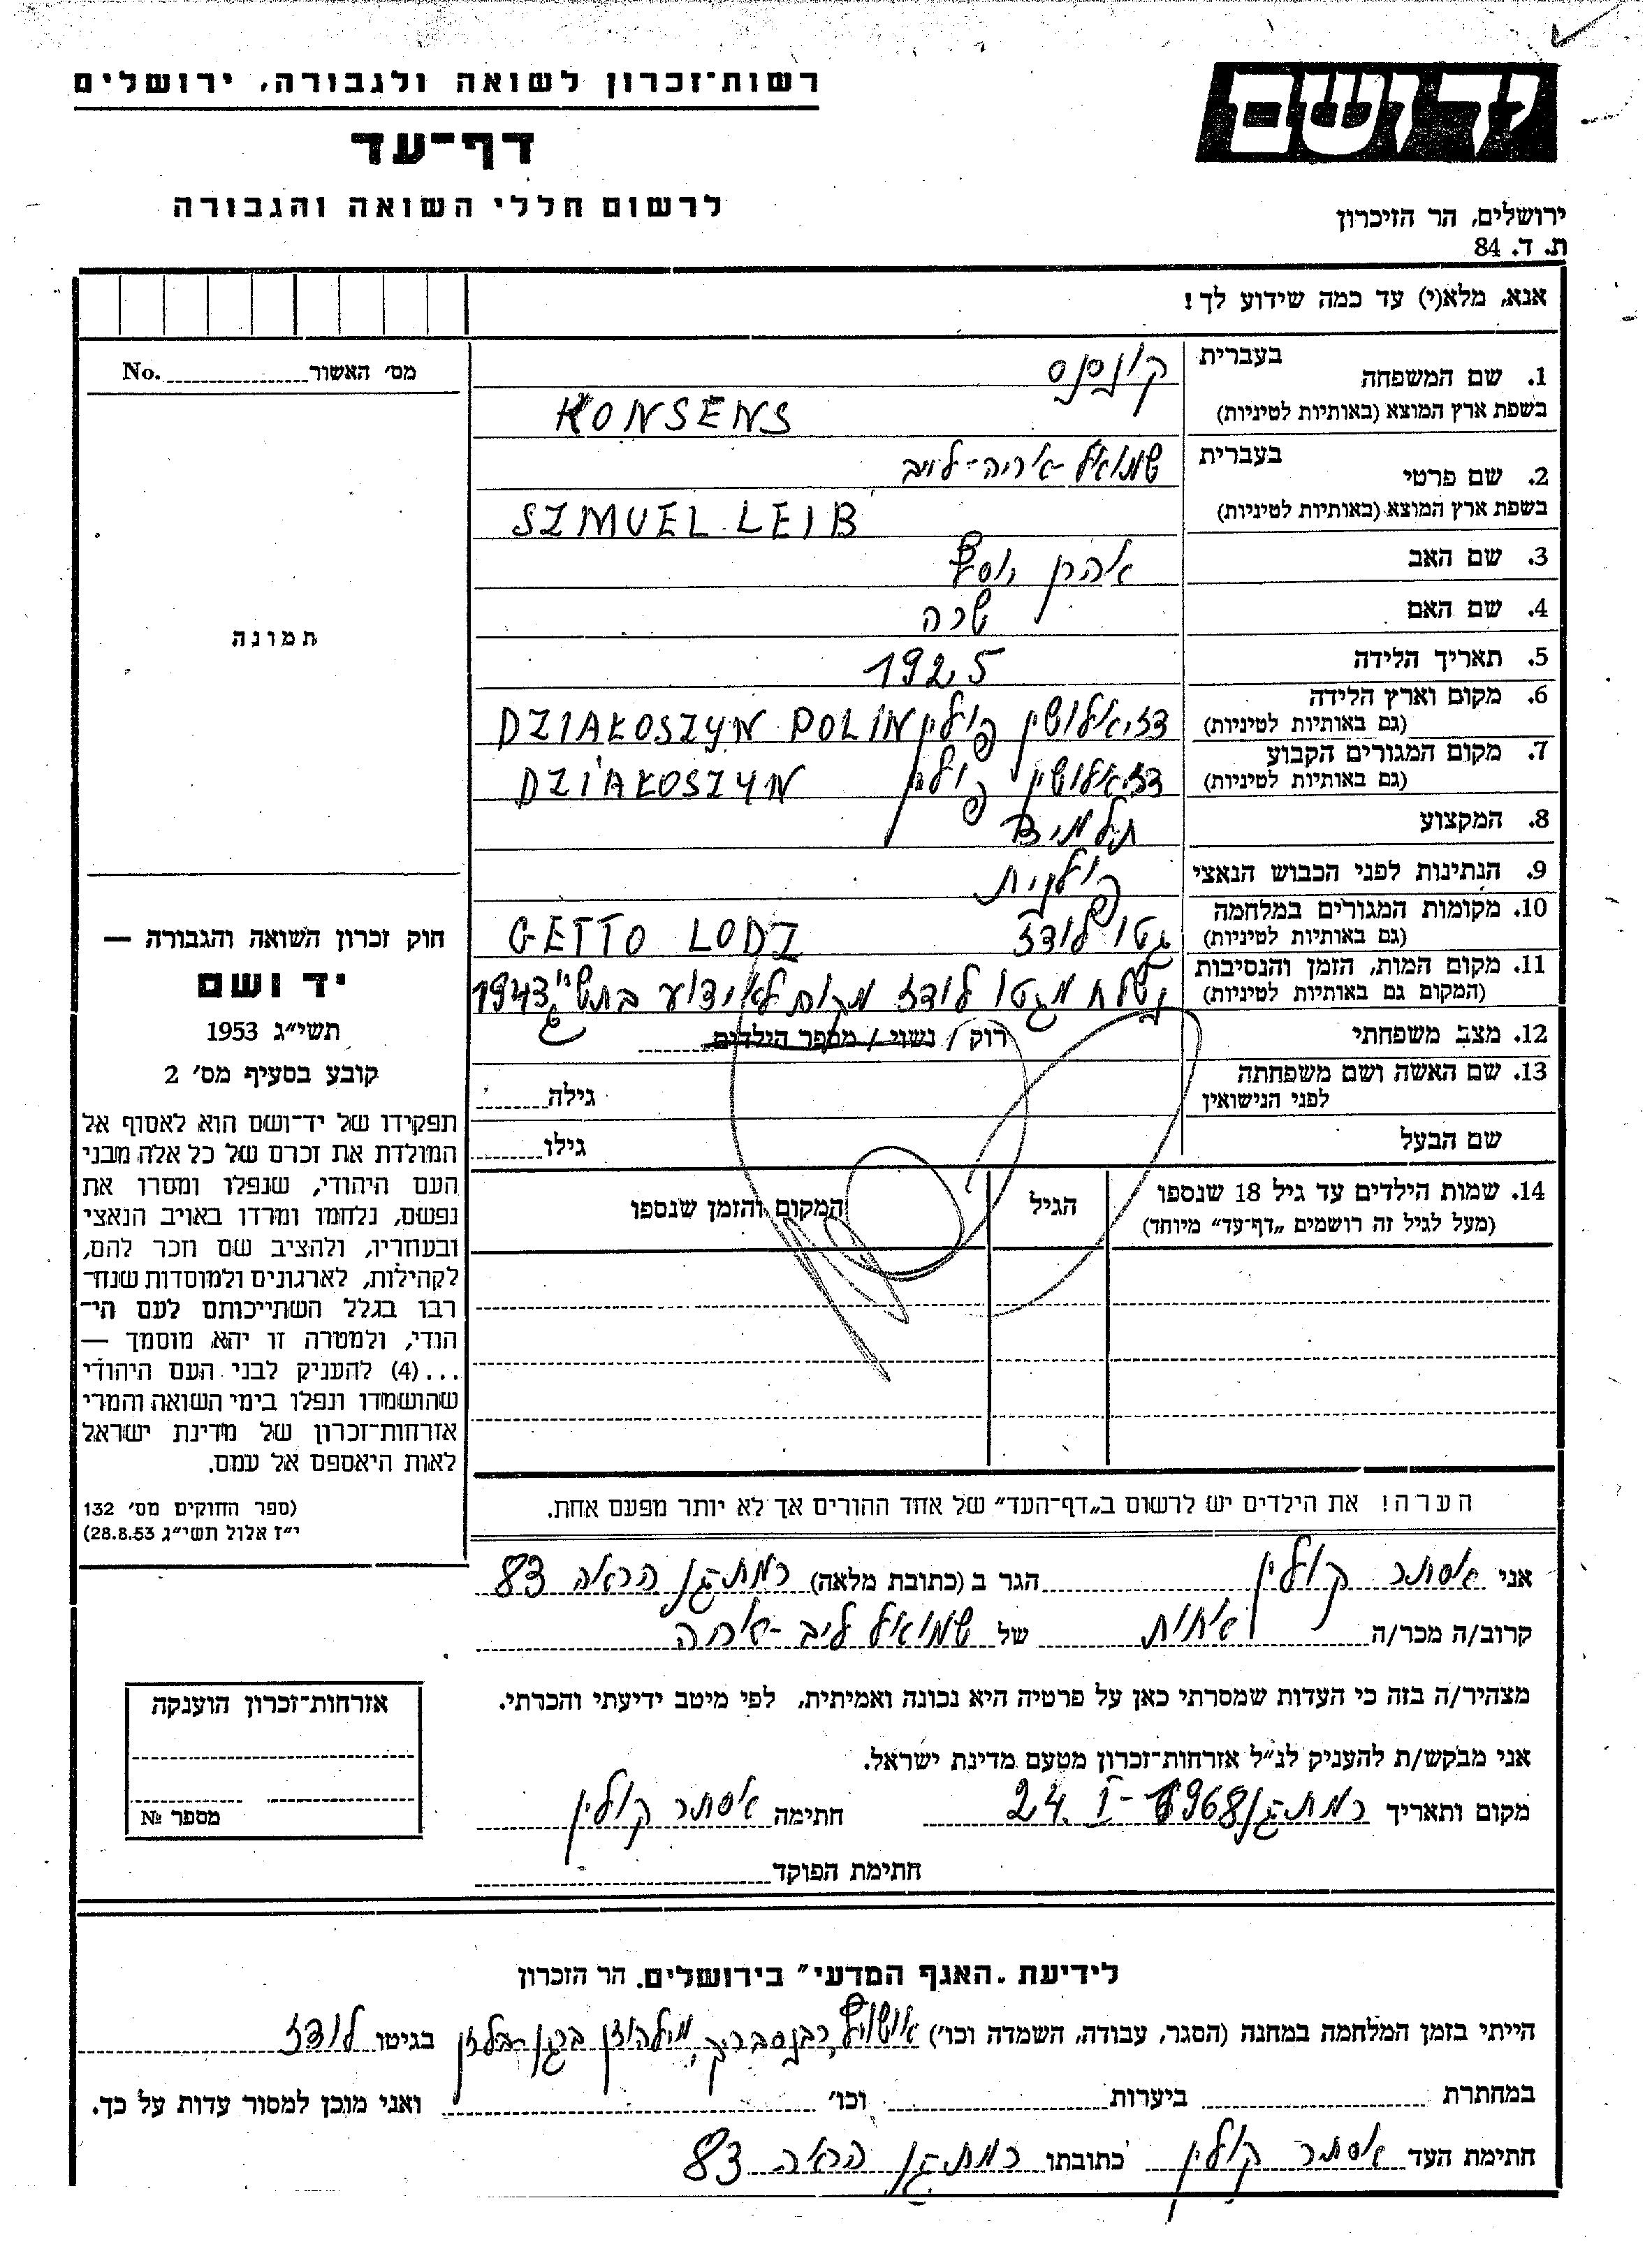 רשות־זכרון לשואה ולגבורה, ירושלים
דף־עד
לרשום חללי השואה והגבורה
יד ושם
ירושלים, הר הזיכרון
ת. ד. 84
אנא, מלא(י) עד כמה שידוע לך!
מס׳ האשור No.
תמונה
חוק זכרון השואה והגבורה —
יד ושם
תשי״ג 1953
קובע בסעיף מס׳ 2
תפקידו של יד־ושם הוא לאסוף אל
המולדת את זכרם של כל אלה מבני
העם היהודי, שנפלו ומסרו את
נפשם, נלחמו ומרדו באויב הנאצי
ובעוזריו, ולהציב שם וזכר להם,
לקהילות, לארגונים ולמוסדות שנח־
רבו בגלל השתייכותם לעם הי־
הודי, ולמטרה זו יהא מוסמך —
...(4) להעניק לבני העם היהודי
שהושמדו ונפלו בימי השואה והמרי
אזרחות־זכרון של מדינת ישראל
לאות היאספם אל עמם.
(ספר החוקים מס׳ 132
י״ז אלול תשי״ג 28.8.53)
1. שם המשפחה בעברית קונסנס
בשפת ארץ המוצא (באותיות לטיניות) KONSENS
2. שם פרטי בעברית שמואל-אריה-לייב
בשפת ארץ המוצא (באותיות לטיניות) SZMUEL LEIB
3. שם האב אהרן יוסף
4. שם האם שרה
5. תאריך הלידה 1925
6. מקום וארץ הלידה דזיאלושין פולין DZIAŁOSZYN POLIN
(גם באותיות לטיניות)
7. מקום המגורים הקבוע דזיאלושין פולין DZIAŁOSZYN
(גם באותיות לטיניות)
8. המקצוע תלמיד
9. הנתינות לפני הכבוש הנאצי פולנית
10. מקומות המגורים במלחמה גטו לודז GETTO LODZ
(גם באותיות לטיניות)
11. מקום המות, הזמן והנסיבות נשלח מגטו לודז מקום לא ידוע 1943
(המקום גם באותיות לטיניות)
12. מצב משפחתי רוק / נשוי / מספר הילדים
13. שם האשה ושם משפחתה גילה
לפני הנישואין
שם הבעל גילו
14. שמות הילדים עד גיל 18 שנספו הגיל המקום והזמן שנספו
(מעל לגיל זה רושמים „דף־עד״ מיוחד)
הערה! את הילדים יש לרשום ב„דף־העד״ של אחד ההורים אך לא יותר מפעם אחת.
אני אסתר קולין הגר ב (כתובת מלאה) רמת גן הרא״ה 83
קרוב/ה מכר/ה אחות של שמואל ליב-אריה
מצהיר/ה בזה כי העדות שמסרתי כאן על פרטיה היא נכונה ואמיתית, לפי מיטב ידיעתי והכרתי.
אני מבקש/ת להעניק לנ״ל אזרחות־זכרון מטעם מדינת ישראל.
מקום ותאריך רמת גן 24.I-1968 חתימה אסתר קולין
חתימת הפוקד
אזרחות־זכרון הוענקה
מספר №
לידיעת „האגף המדעי״ בירושלים. הר הזכרון
הייתי בזמן המלחמה במחנה (הסגר, עבודה, השמדה וכו׳) אושויץ, רבנסבריק, מילהוזן ברגן-בלזן בגיטו לודז
במחתרת ביערות וכו׳ ואני מוכן למסור עדות על כך.
חתימת העד אסתר קולין כתובתו רמת גן הרא״ה 83